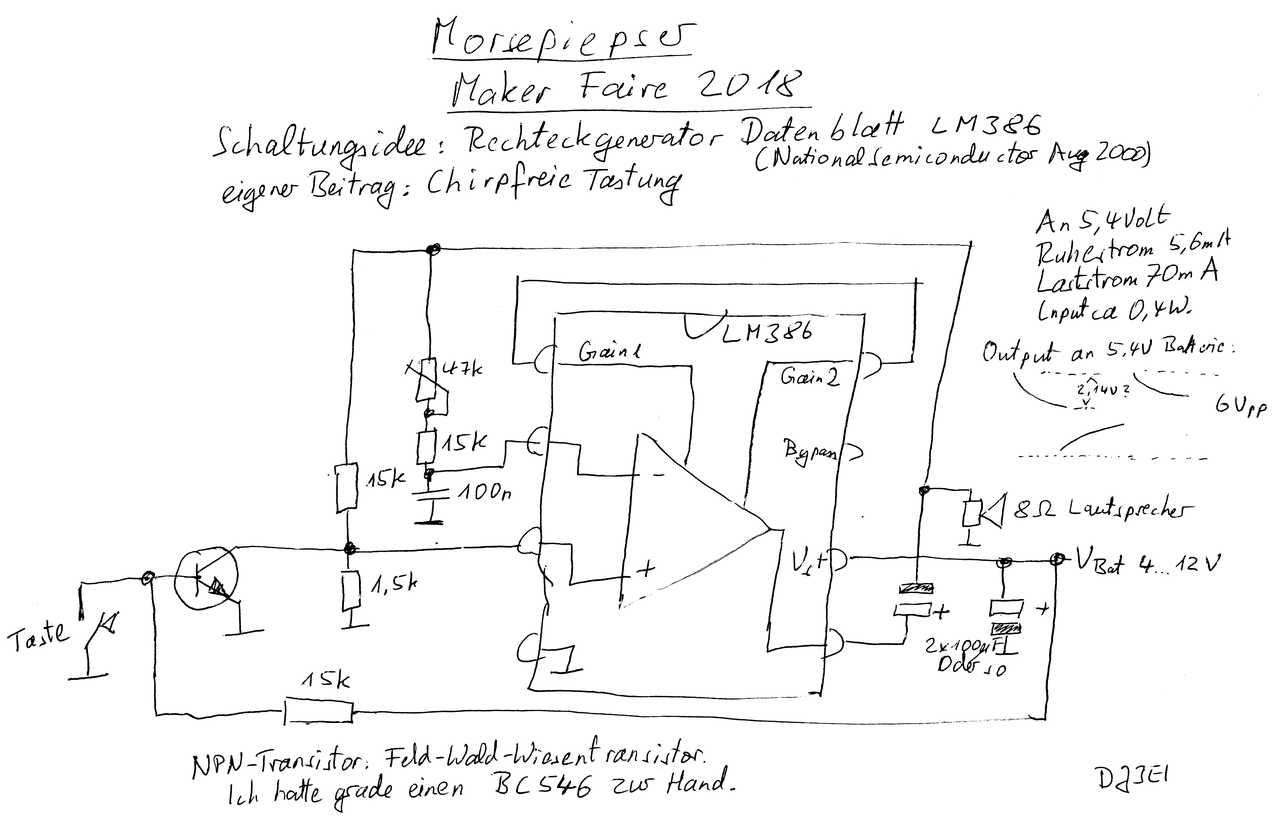 Morsepiepser
Maker Faire 2018
Schaltungsidee: Rechteckgenerator Datenblatt LM386
(Nationalsemiconductor Aug 2000)
eigener Beitrag: Chirpfreie Tastung
An 5,4Volt
Ruhestrom 5,6mA
Laststrom 70mA
Input ca 0,4W.
Output an 5,4V Batterie:
2,14V?
6Vpp
LM386
Gain1
Gain2
47k
15k
Bypass
15k
100n
8Ω Lautsprecher
Vs+
VBat 4...12V
1,5k
Taste
2x100µF
Oder so
15k
NPN-Transistor: Feld-Wald-Wiesentransistor.
Ich hatte grade einen BC546 zur Hand.
DJ3EI